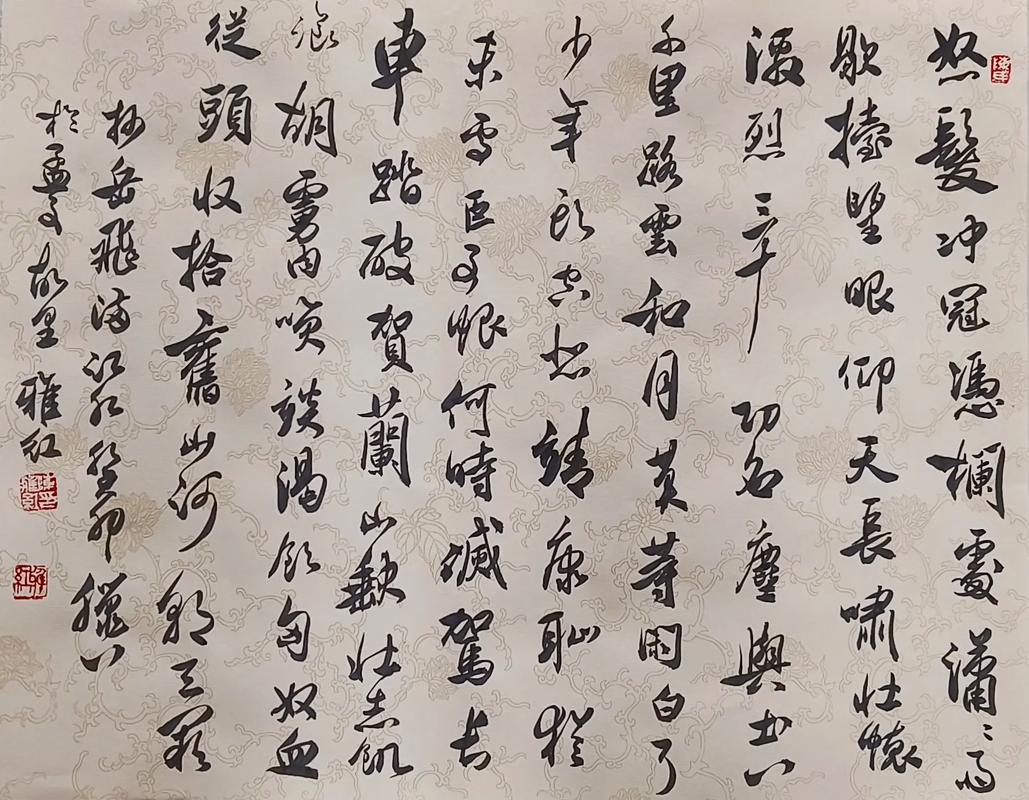 怒髮冲冠憑欄處瀟瀟雨
歇擡望眼仰天長嘯壯懷
激烈三十功名塵與土八
千里路雲和月莫等閑白了
少年頭空悲靖康耻猶
未雪臣子恨何時滅駕長
車踏破賀蘭山缺壯志飢
飡胡虜肉笑談渴飲匈奴血
從頭收拾舊山河朝天闕
抄岳飛滿江紅癸卯臘八
於孟子故里雅紅